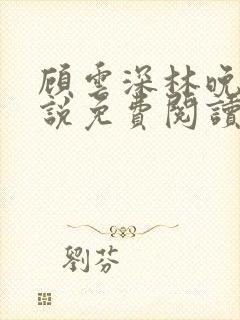 顾雲深林晚
說免費閱讀
劉芬